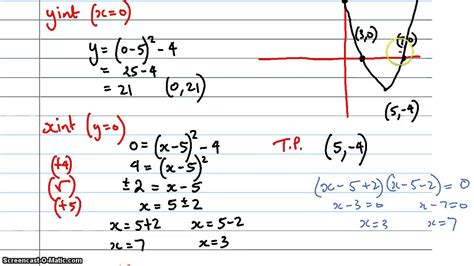 yint (x=0)
y = (0-5)² - 4
= 25 - 4
= 21 (0,21)
(3,0)
(5,-4)
xint (y=0)
0 = (x-5)² - 4
(+4) 4 = (x-5)²
(√) ±2 = x-5
(+5) x = 5 ± 2
x = 5+2 x = 5-2
x = 7 x = 3
T.P. (5,-4)
(x-5+2)(x-5-2) = 0
x-3=0 x-7=0
x=3 x=7
Screencast-O-Matic.com